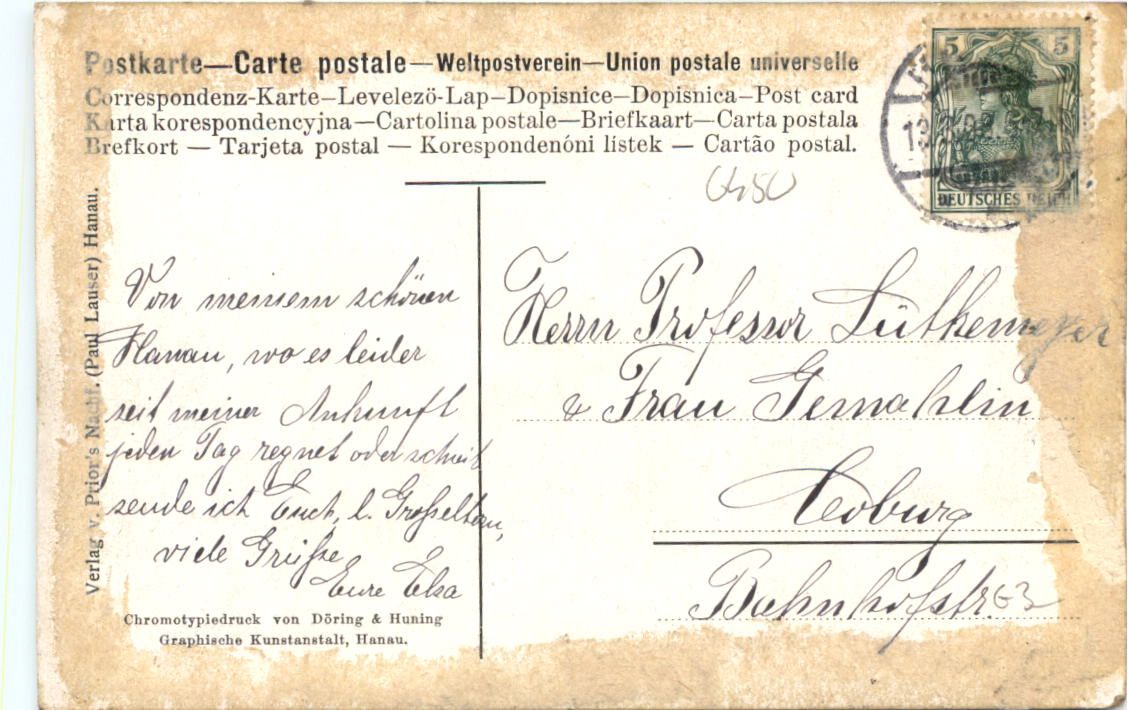 Postkarte—Carte postale—Weltpostverein—Union postale universelle
Correspondenz-Karte—Levelező-Lap—Dopisnice—Dopisnica—Post card
Karta korespondencyjna—Cartolina postale—Briefkaart—Carta postala
Brefkort — Tarjeta postal — Korespondenóni lístek — Cartão postal.
5 5
DEUTSCHES REICH
6450
Verlag v. Prior's Nachf. (Paul Lauser) Hanau.
Von meinem schönen
Hanau, wo es leider
seit meiner Ankunft
jeden Tag regnet oder schneit
sende ich Euch, l. Großeltern,
viele Grüße
Eure Elsa
Chromotypiedruck von Döring & Huning
Graphische Kunstanstalt, Hanau.
Herrn Professor Lütkemeyer
& Frau Gemahlin
Coburg
Bahnhofstr.